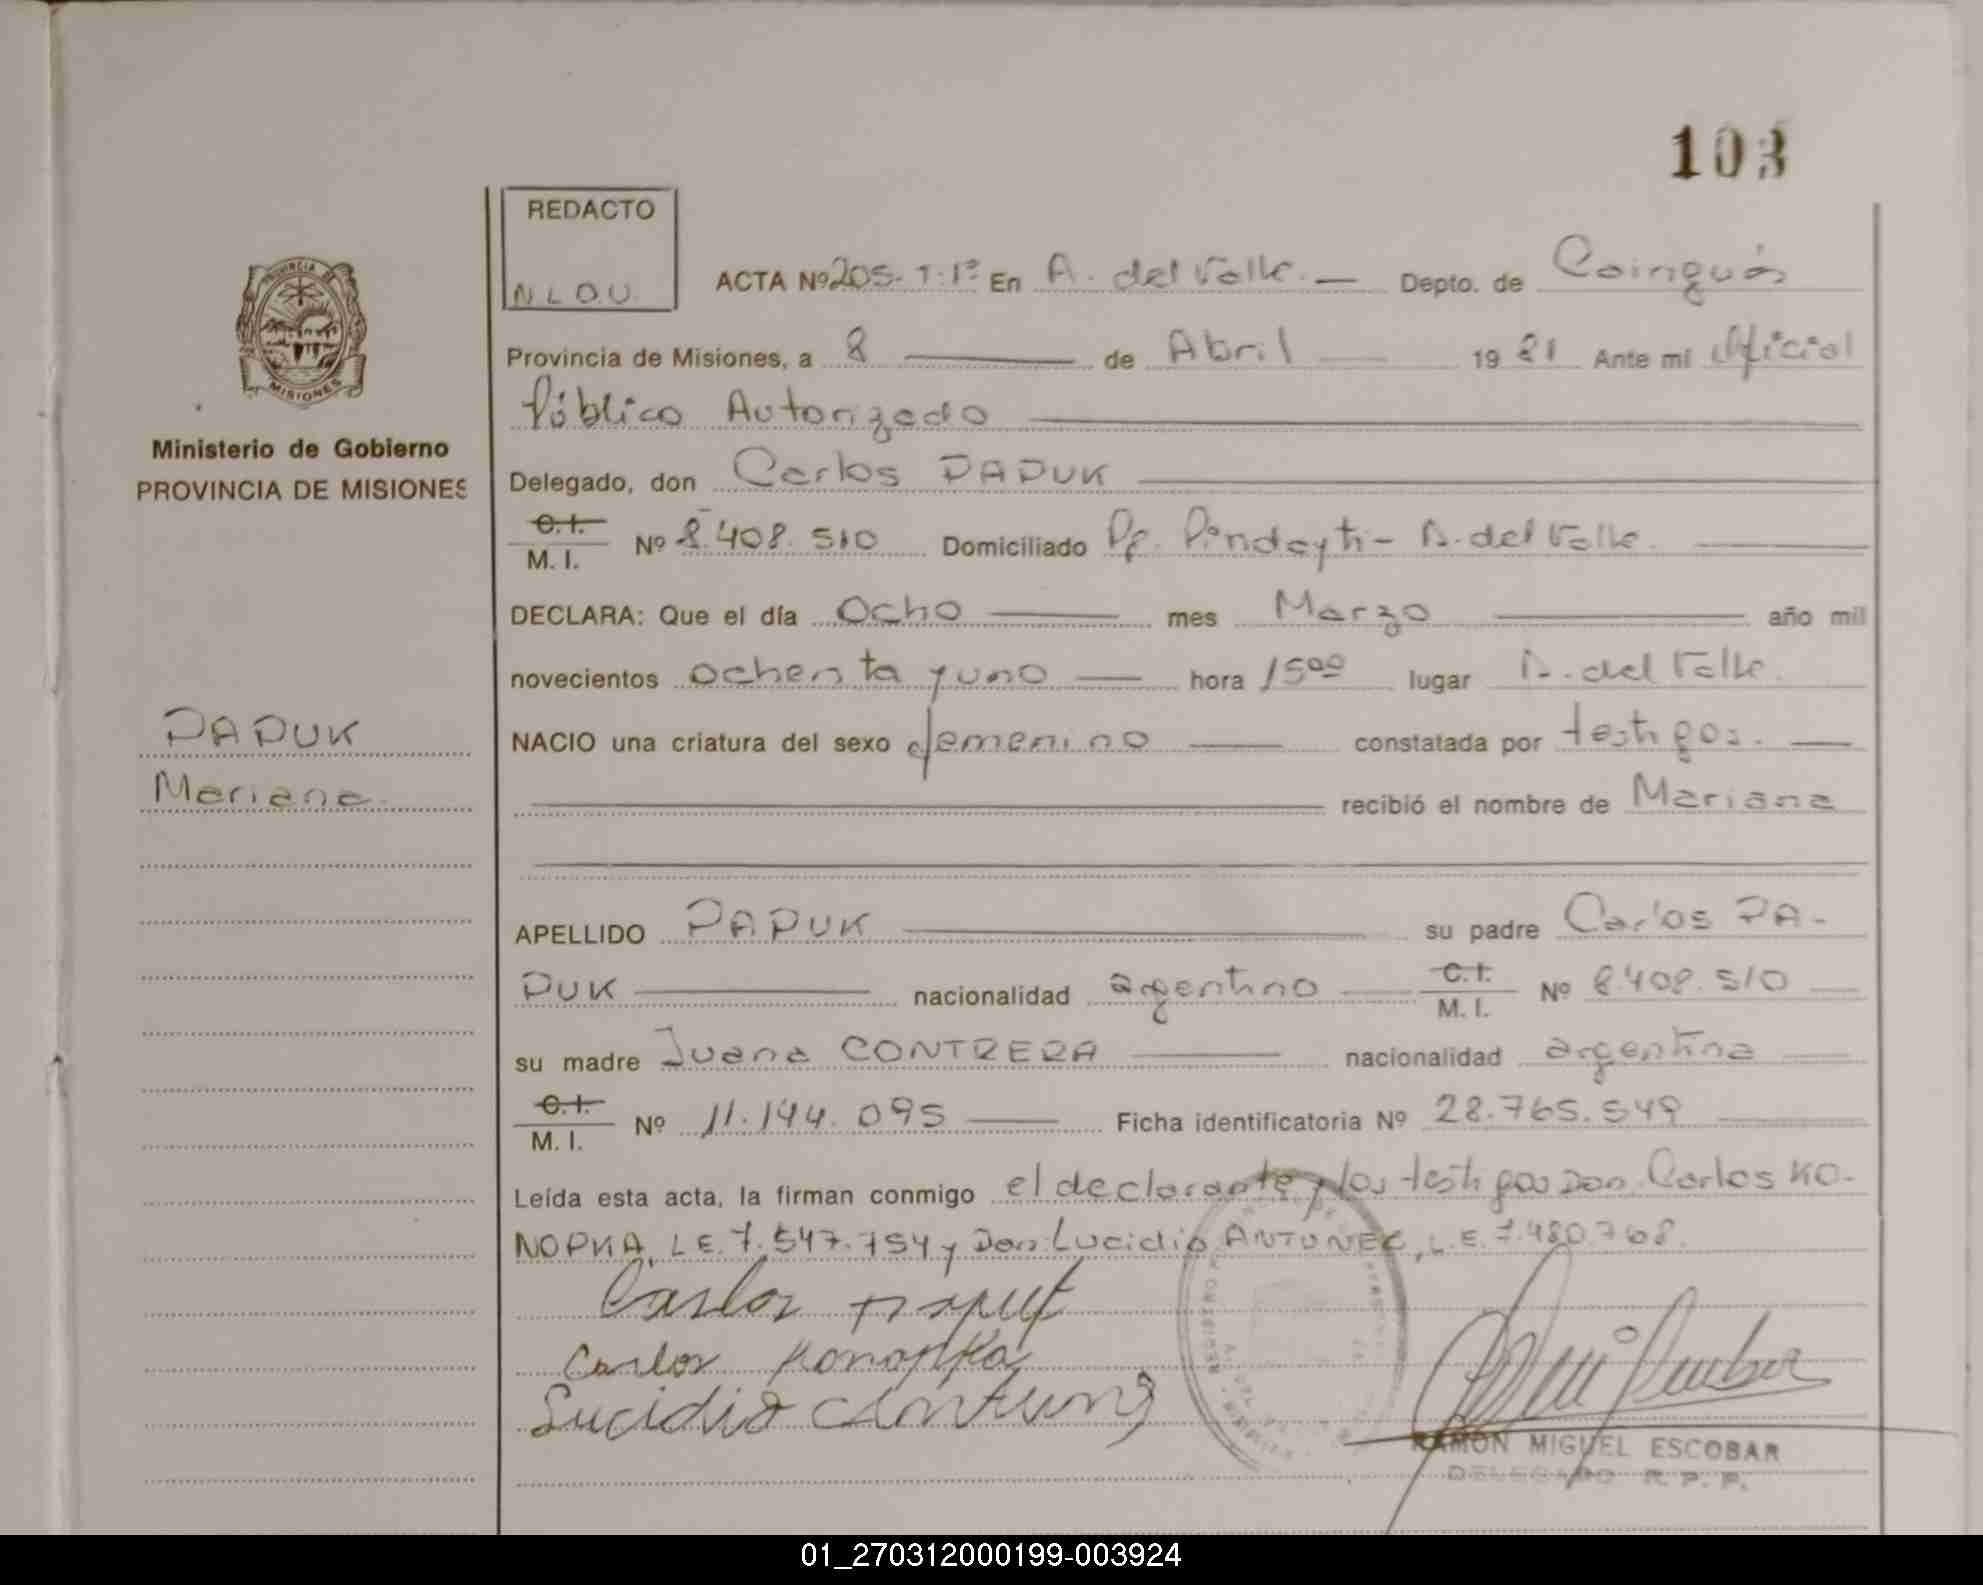 103
REDACTO
N L D U
PROVINCIA DE
MISIONES
Ministerio de Gobierno
PROVINCIA DE MISIONES
PAPUK
Mariana
ACTA Nº 205- T: 1º En A. del Valle.— Depto. de Cainguás
Provincia de Misiones, a 8 — de Abril — 1981 Ante mi Oficial
Público Autorizado —
Delegado, don Carlos PAPUK —
C.I. / M. I. Nº 8.408.510 Domiciliado Pje. Pindayti - A. del Valle. —
DECLARA: Que el día Ocho — mes Marzo — año mil
novecientos ochenta y uno — hora 15⁰⁰ lugar A. del Valle.
NACIO una criatura del sexo femenino — constatada por testigos. —
— recibió el nombre de Mariana
APELLIDO PAPUK — su padre Carlos PA-
PUK — nacionalidad argentino — C.I. / M. I. Nº 8.408.510 —
su madre Juana CONTRERA — nacionalidad argentina —
C.I. / M. I. Nº 11.144.095 — Ficha identificatoria Nº 28.765.549 —
Leída esta acta, la firman conmigo el declarante y los testigos Don Carlos KO-
NOPKA, L.E. 7.547.754 y Don Lucidio ANTUNEZ, L.E. 7.480.768.
Carlos Papuk
Carlos Konopka
Lucidio Antunez
RAMON MIGUEL ESCOBAR
DELEGADO R. P. P.
01_270312000199-003924